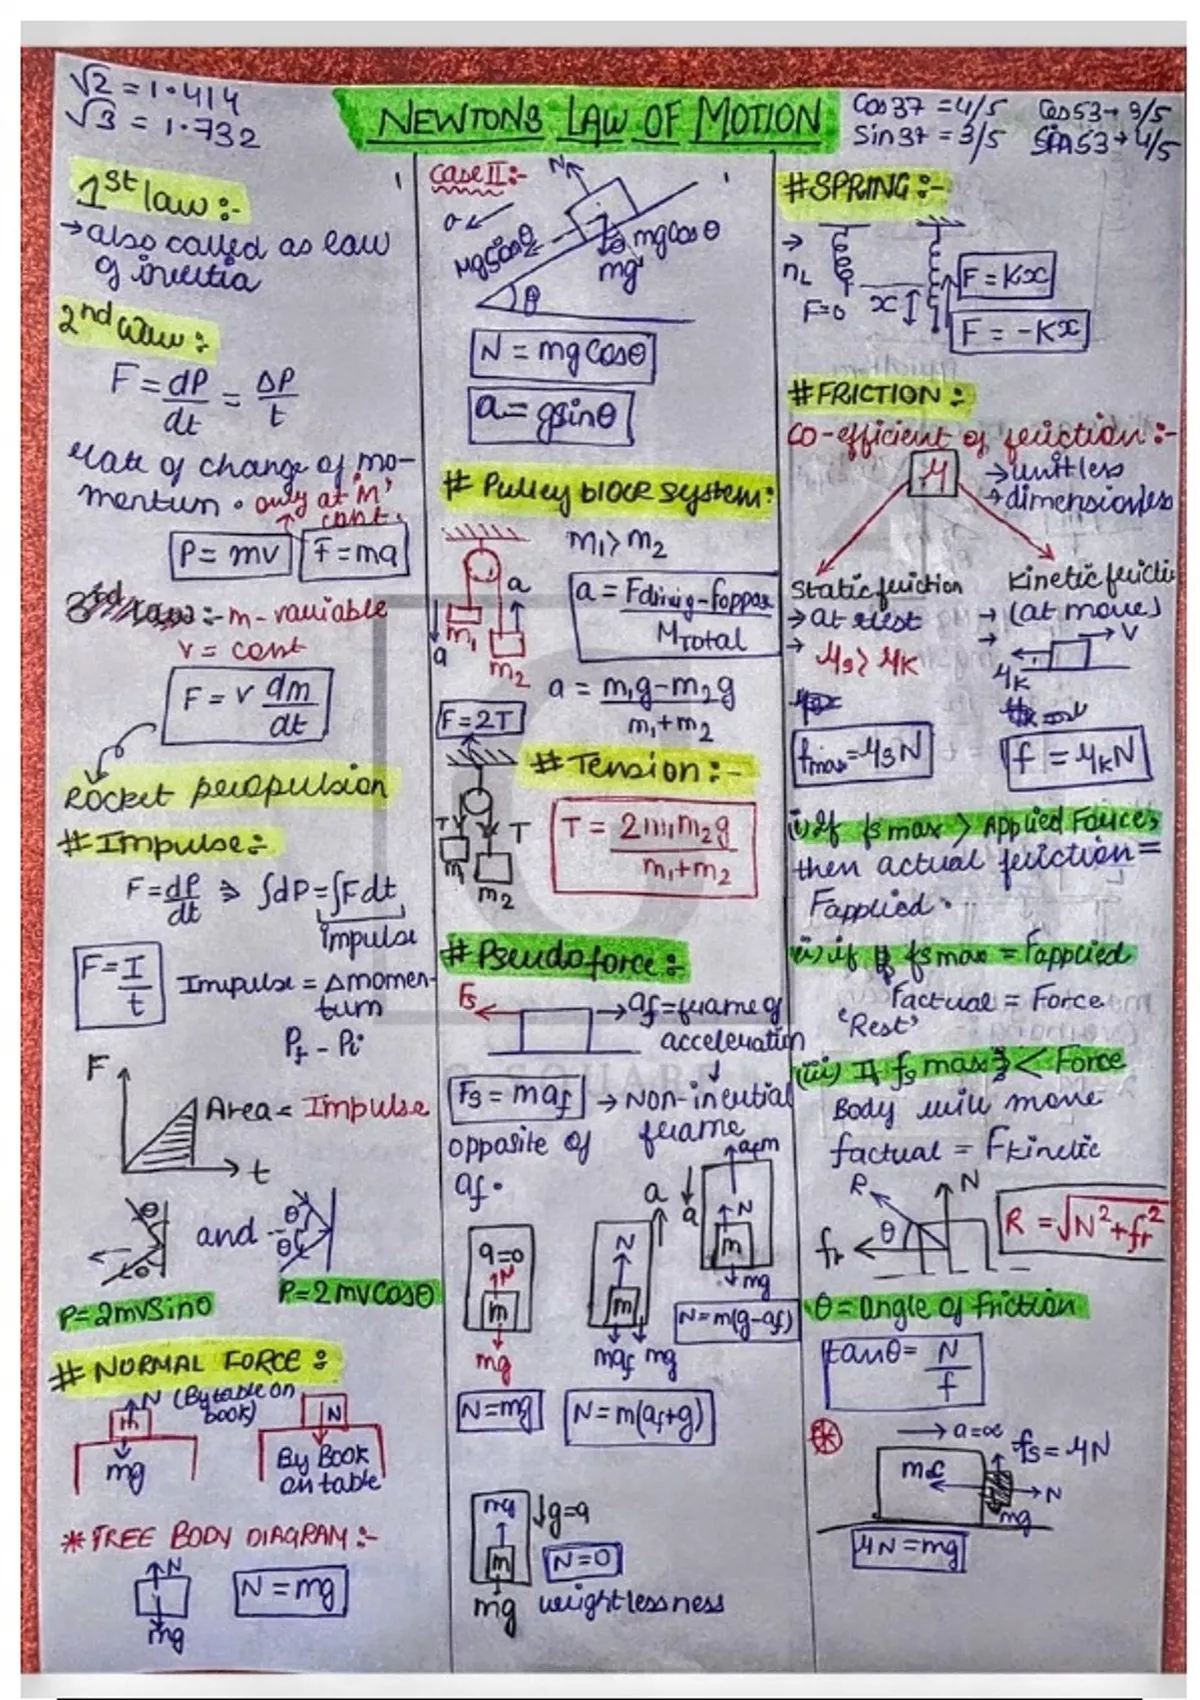 √2 = 1.414
√3 = 1.732
NEWTONS LAW OF MOTION
Cos37 = 4/5 Cos53→ 3/5
Sin37 = 3/5 Sin53→ 4/5
1st law :-
→ also called as law
of inertia
2nd law :
F = dP/dt = ΔP/t
rate of change of mo-
mentum . only at 'm'
const.
P = mv F = ma
3rd law :- m - variable
v = const
F = v dm/dt
Rocket peropulsion
# Impulse :-
F = dP/dt ⇒ ∫dP = ∫Fdt
impulse
F = I/t
Impulse = Δmomen-
tum
Pf - Pi
F
Area = Impulse
t
θ and θ
θ θ
P = 2mvSinθ P = 2mvCosθ
# NORMAL FORCE :
N (By table on
book)
m N
mg
By Book
on table
* FREE BODY DIAGRAM :-
N
N = mg
mg
Case II :-
N
a
mgSinθ
θ mgcosθ
mg
θ
N = mgCosθ
a = gsinθ
# Pulley block system :
m₁ > m₂
a
m₁
a
m₂
a = Fdriving - Foppose / MTotal
a = m₁g - m₂g / m₁ + m₂
F = 2T
# Tension :-
T T
m₁
m₂
T = 2m₁m₂g / m₁ + m₂
# Pseudo force :-
Fs
→ af = frame of
acceleration
Fs = maf → Non-inertial
frame
opposite of
af .
a = 0
N
m
mg
a
N
m
maf mg
a
N
m
mg
N = m(g - af)
N = mg N = m(af + g)
↓g = a
m
N = 0
mg weightlessness
# SPRING :-
F = 0
x
F = Kx
F = -Kx
# FRICTION :
Co-efficient of friction :-
μ
→ unitless
→ dimensionless
Static friction
→ at rest
→ μs > μk
fmax = μsN
Kinetic frictio
→ (at move)
→ V
μk
f = μkN
(i) If fs max > Applied Force,
then actual friction =
Fapplied .
(ii) if fs max = Fapplied
factual = Force
'Rest'
(iii) If fs max < Force
Body will move
factual = Fkinetic
R N
fr θ
R = √N² + fr²
θ = angle of friction
tanθ = N/f
→ a = ∝
fs = μN
N
mg
μN = mg